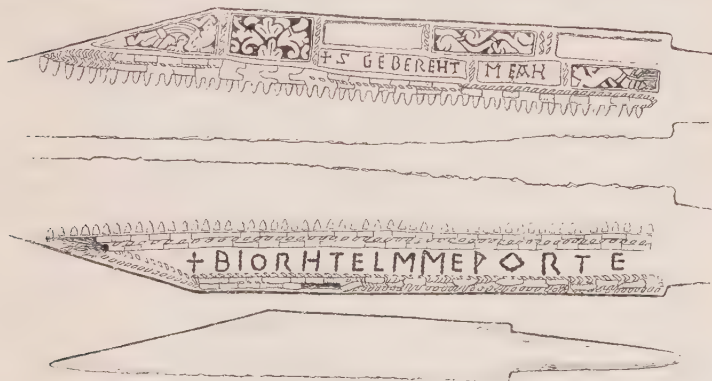 + S GEBEREHT MEAH
+BIORHTELMMEÞORTE